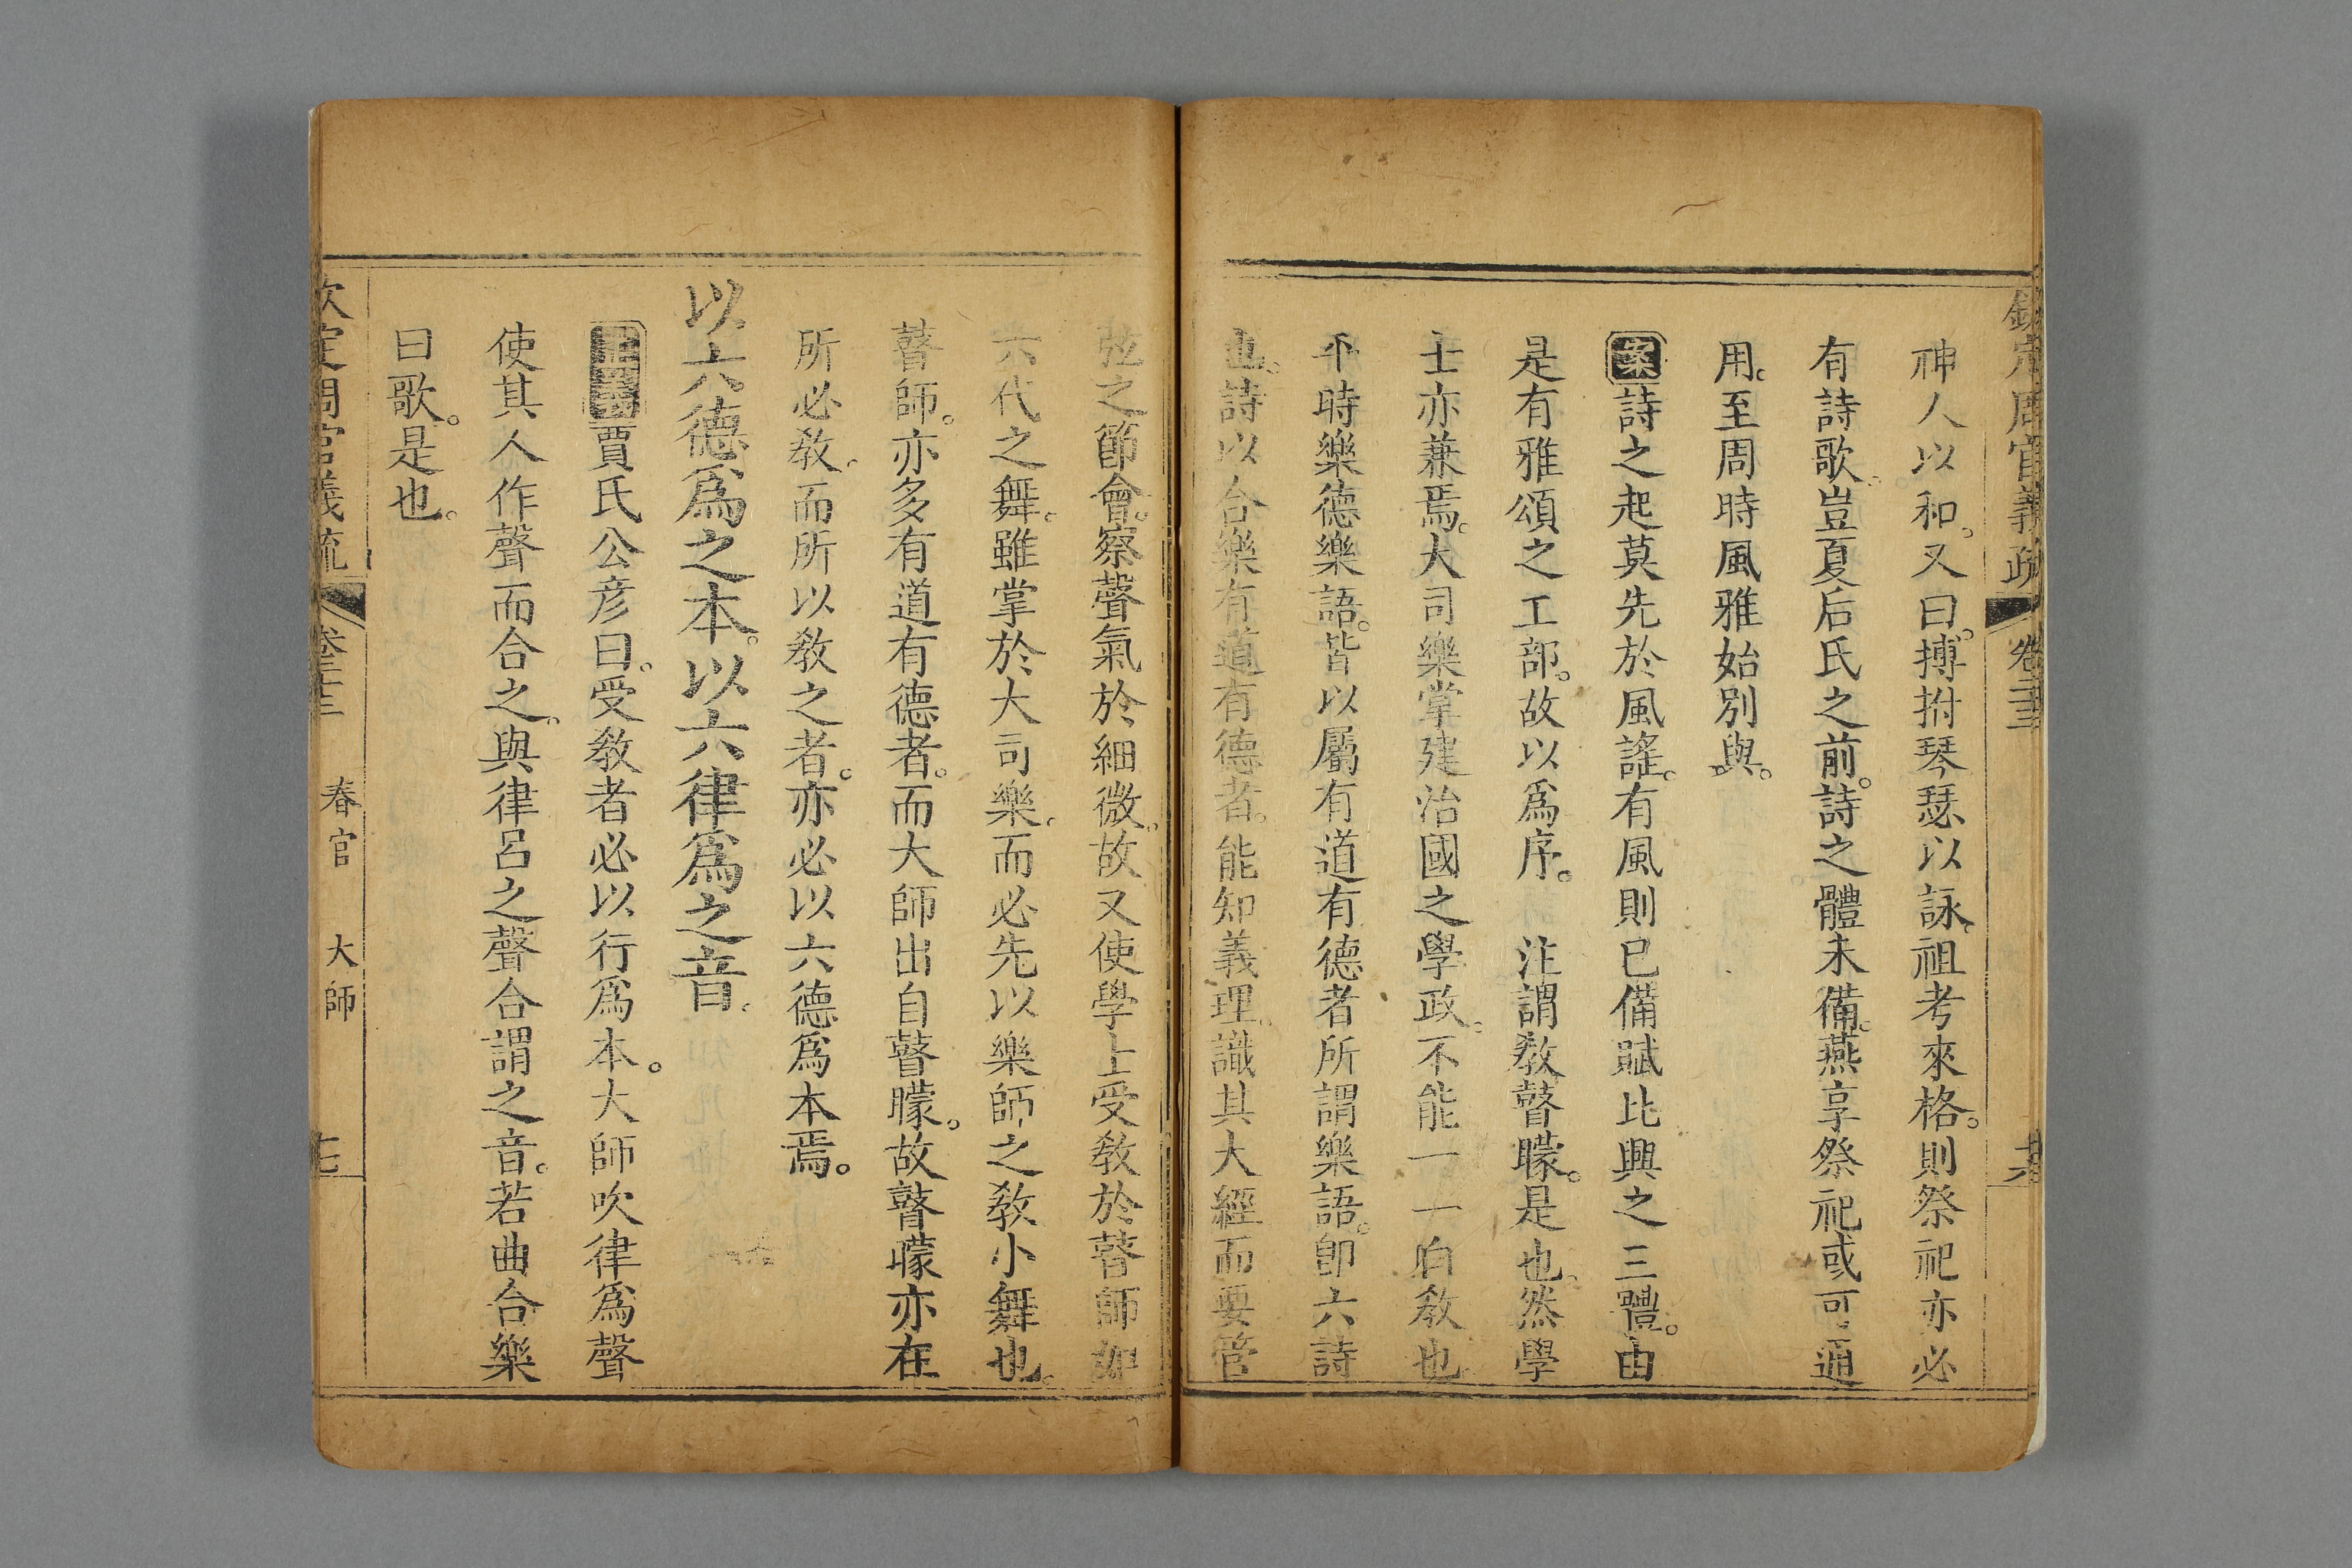 欽定周官義疏 卷二十三 十六
神人以和。又曰。搏拊琴瑟以詠。祖考來格。則祭祀亦必
有詩歌。豈夏后氏之前。詩之體未備。燕享祭祀或可通
用。至周時風雅始別與。
案詩之起莫先於風謠。有風則已備賦比興之三體。由
是有雅頌之工部。故以爲序。 注謂教瞽矇。是也。然學
士亦兼焉。大司樂掌建治國之學政。不能一一自教也
平時樂德樂語。皆以屬有道有德者所謂樂語。卽六詩
也。詩以合樂有道有德者。能知義理。識其大經而要管
弦之節會。察聲氣於細微。故又使學士受教於瞽師如
六代之舞。雖掌於大司樂。而必先以樂師之教小舞也。
瞽師。亦多有道有德者。而大師出自瞽矇。故瞽矇亦在
所必教。而所以教之者。亦必以六德爲本焉。
以六德爲之本。以六律爲之音。
正義賈氏公彥曰。受教者必以行爲本。大師吹律爲聲
使其人作聲而合之。與律呂之聲合謂之音。若曲合樂
曰歌。是也。
欽定周官義疏 卷二十三 春官 大師 十七